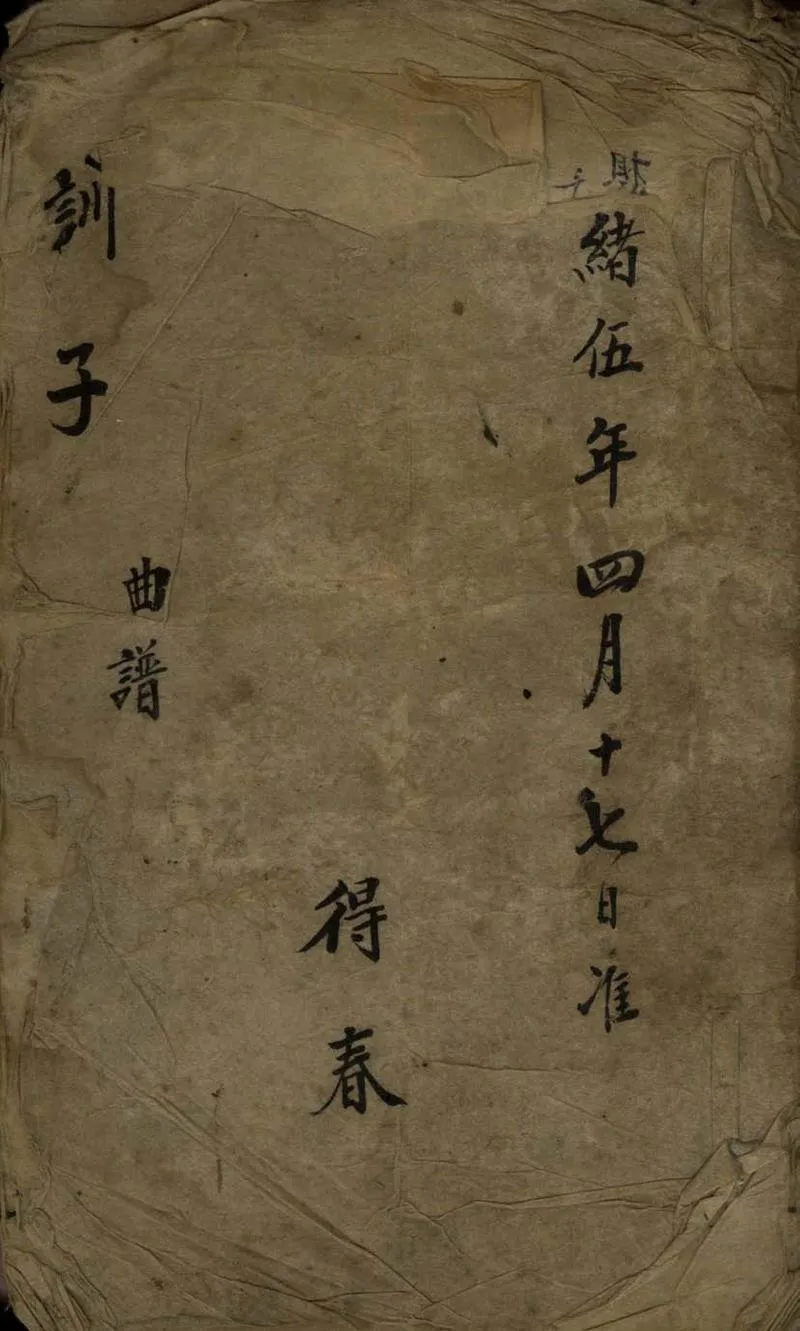 緒伍年四月十七日准
得春
曲譜
訓子